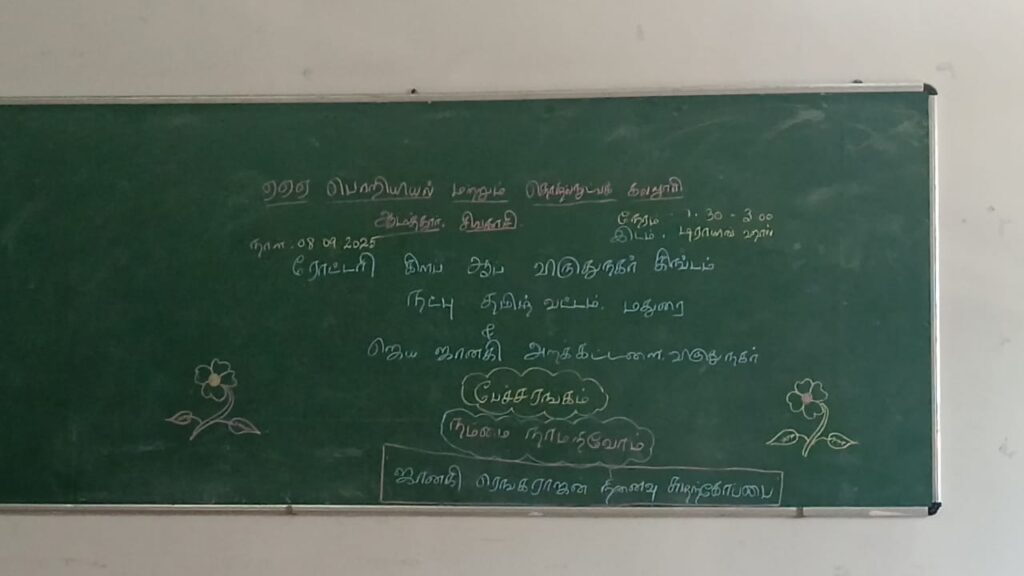 ஏஏஏ பொறியியல் மற்றும் தொழில்நுட்பக் கல்லூரி
ஆமத்தூர், சிவகாசி.
நேரம் : 1.30 - 3.00
நாள் : 08.09.2025
இடம் :
ரோட்டரி கிளப் ஆப் விருதுநகர் கிங்டம்
நட்பு தமிழ் வட்டம், மதுரை
&
ஜெய ஜானகி அறக்கட்டளை, விருதுநகர்
பேச்சரங்கம்
நம்மை நாமறிவோம்
ஜானகி ரெங்கராஜன் நினைவு சுழற்கோப்பை